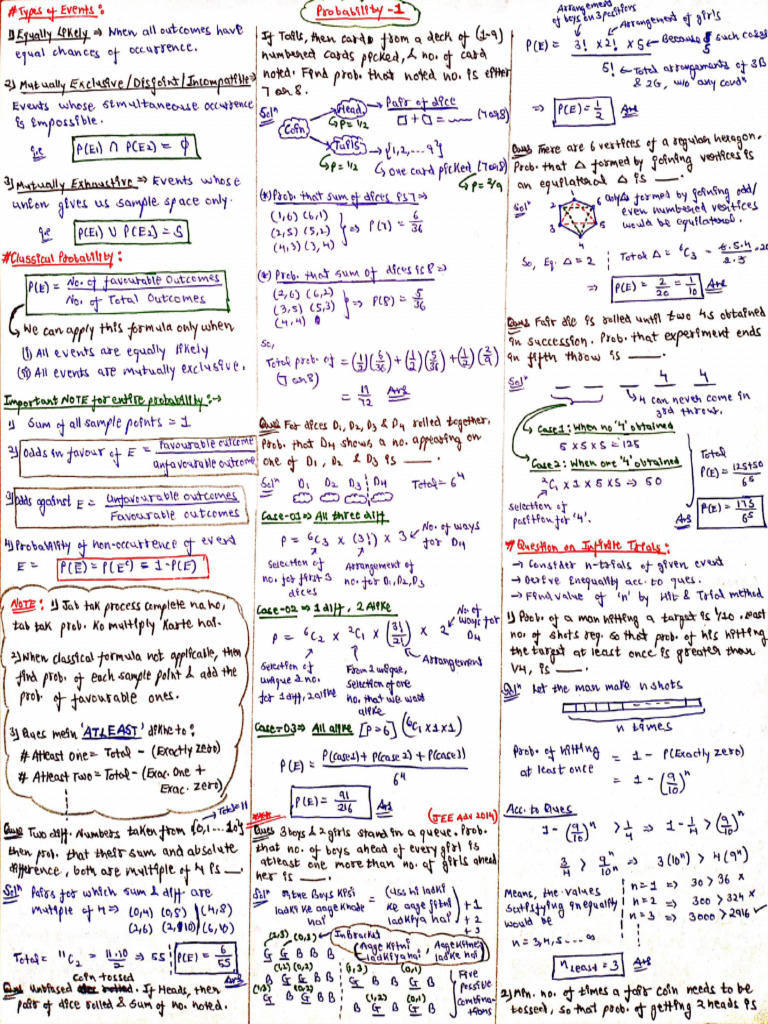 Probability - 1
# Types of Events :
1) Equally Likely ⇒ When all outcomes have
equal chances of occurrence.
2) Mutually Exclusive/Disjoint/Incompatible ⇒
Events whose simultaneous occurrence
is impossible.
ie P(E1) ∩ P(E2) = ϕ
3) Mutually Exhaustive ⇒ Events whose
union gives us sample space only.
ie P(E1) ∪ P(E2) = S
# Classical Probability :
P(E) = No. of favourable Outcomes
No. of Total Outcomes
We can apply this formula only when
(i) All events are equally likely
(ii) All events are mutually exclusive.
Important NOTE for entire probability : →
1) Sum of all sample points = 1
2) Odds in favour of E = favourable outcome
unfavourable outcome
3) Odds against E = Unfavourable outcomes
Favourable outcomes
4) Probability of non-occurrence of event
E = P(Ē) = P(Eᶜ) = 1 - P(E)
NOTE : 1) Jab tak process complete na ho,
tab tak prob. ko multiply karte hai.
2) When classical formula not applicable, then
find prob. of each sample point & add the
prob of favourable ones.
3) Ques mein 'ATLEAST' dikhe to :
# Atleast one = Total - (Exactly zero)
# Atleast Two = Total - (Exac. One +
Exac. zero)
Total = 11
Ques Two diff. Numbers taken from {0,1...10}
then prob. that their sum and absolute
difference, both are multiple of 4 is __.
Solⁿ Pairs for which sum & diff. are
multiple of 4 ⇒ (0,4) (0,8) (4,8)
(2,6) (2,10) (6,10)
Total = ¹¹C₂ = 11.10/2 ⇒ 55 P(E) = 6/55 Ans
coin tossed
Ques unbiased dice rolled. If Heads, then
pair of dice rolled & sum of no. noted.
If Tails, then cards from a deck of (1-9)
numbered cards picked, & no. of card
noted. Find prob. that noted no. is either
7 or 8.
Solⁿ Coin Head Pair of dice
□ + □ = ..... (7 or 8)
P = 1/2
Tails → {1,2,...9}
P = 1/2 one card picked (7 or 8)
P = 2/9
(*) Prob. that sum of dices is 7 →
(1,6) (6,1)
(2,5) (5,2) ⇒ P(7) = 6/36
(4,3) (3,4)
(*) Prob. that sum of dices is 8 ⇒
(2,6) (6,2)
(3,5) (5,3) ⇒ P(8) = 5/36
(4,4)
So,
Total prob. of (7 or 8) = (1/2)(6/36) + (1/2)(5/36) + (1/2)(2/9)
= 19/72 Ans
Ques For dices D1, D2, D3 & D4 rolled together.
Prob. that D4 shows a no. appearing on
one of D1, D2 & D3 is ___.
Solⁿ D1 D2 D3 D4 Total = 6⁴
Case-01 ⇒ All three diff
P = ⁶C₃ × (3!) × 3 No. of ways for D4
Selection of no. for first 3 dices
Arrangement of no. for D1, D2, D3
Case-02 ⇒ 1 diff, 2 Alike
P = ⁶C₂ × ²C₁ × (3!/2!) × 2 No. of ways for D4
Selection of unique 2 no. for 1 diff, 2 alike
From 2 unique, selection of one no. that we want alike
Arrangement
Case-03 ⇒ All alike [P = 6] (⁶C₁ × 1 × 1)
P(E) = P(case1) + P(case2) + P(case3)
6⁴
P(E) = 91/216 Ans
(JEE Adv 2014)
Ques 3 boys & 2 girls stand in a queue. Prob.
that no. of boys ahead of every girl is
atleast one more than no. of girls ahead
her is ___.
+ 1
+ 2
+ 3
(2,3) (0,3) In Bracket
Aage kitni ladkiya hai, Aage kitne ladke hai
G G B B B
(1,2) (0,2) (1,3) (0,1)
G B G B B G B B G B
(1,3) (0,2) (1,2) (0,1)
Five possible combinations
Arrangement of boys on 3 positions
Arrangement of girls
P(E) = 3! × 2! × 5 ← Because 5 such cases
5! ← Total arrangements of 3B
& 2G, w/o any condⁿ
⇒ P(E) = 1/2 Ans
Ques There are 6 vertices of a regular hexagon.
Prob. that △ formed by joining vertices is
an equilateral △ is ___.
Solⁿ Only △ formed by joining odd/
even numbered vertices
would be equilateral.
So, Eq. △ = 2 Total △ = ⁶C₃
⇒ P(E) = 2/20 = 1/10 Ans
Ques Fair die is rolled until two 4s obtained
in succession. Prob. that experiment ends
in fifth throw is ___.
Solⁿ _ _ _ 4 4
4 can never come in
3rd throw.
Case 1: When no '4' obtained
5 × 5 × 5 = 125
Case 2: When one '4' obtained
²C₁ × 1 × 5 × 5 ⇒ 50
Selection of position for '4'.
Total
P(E) = 125+50
6⁵
Ans P(E) = 175/6⁵
# Question on Infinite Trials :
→ Consider n-trials of given event
→ Derive Inequality acc. to ques.
→ Find value of 'n' by Hit & Trial method
1) Prob. of a man hitting a target is 1/10. Least
no. of shots req. so that prob. of his hitting
the target at least once is greater than
1/4, is ___.
Solⁿ Let the man make n shots
n times
Prob. of hitting at least once = 1 - P(Exactly zero)
= 1 - (9/10)ⁿ
Acc. to Ques
1 - (9/10)ⁿ > 1/4 ⇒ 1 - 1/4 > (9/10)ⁿ
3/4 > 9ⁿ/10ⁿ ⇒ 3(10ⁿ) > 4(9ⁿ)
Means, the values
satisfying inequality
would be
n = 3, 4, 5 ... ∞
n = 1 ⇒ 30 > 36 ×
n = 2 ⇒ 300 > 324 ×
n = 3 ⇒ 3000 > 2916 ✓
n least = 3 Ans
2) Min. no. of times a fair coin needs to be
tossed, so that prob. of getting 2 heads is